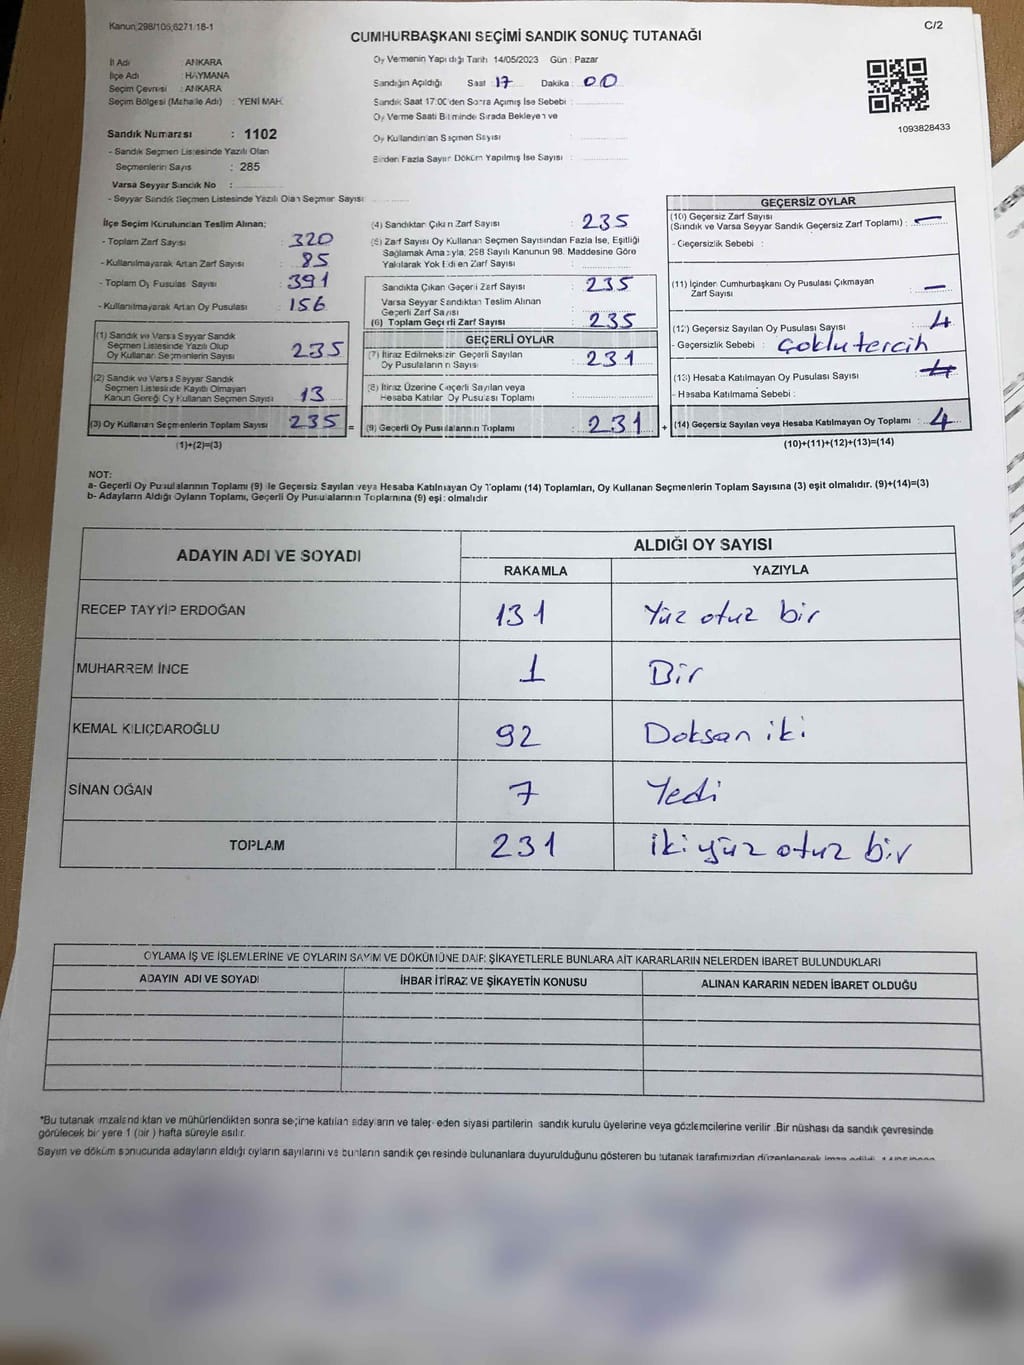 Kanun:298/106,6271/18-1
C/2
CUMHURBAŞKANI SEÇİMİ SANDIK SONUÇ TUTANAĞI
İl Adı ANKARA
İlçe Adı : HAYMANA
Seçim Çevresi : ANKARA
Seçim Bölgesi (Mahalle Adı) : YENİ MAH.
Sandık Numarası : 1102
- Sandık Seçmen Listesinde Yazılı Olan
Seçmenlerin Sayısı : 285
Varsa Seyyar Sandık No :
- Seyyar Sandık Seçmen Listesinde Yazılı Olan Seçmen Sayısı:
Oy Vermenin Yapıldığı Tarih 14/05/2023 Gün : Pazar
Sandığın Açıldığı Saat : 17 Dakika : 00
Sandık Saat 17:00'den Sonra Açımış İse Sebebi :
Oy Verme Saati Bitiminde Sırada Bekleyen ve
Oy Kullandırılan Seçmen Sayısı :
Birden Fazla Sayım Döküm Yapılmış İse Sayısı :
1093828433
İlçe Seçim Kurulundan Teslim Alınan;
- Toplam Zarf Sayısı : 320
- Kullanılmayarak Artan Zarf Sayısı : 85
- Toplam Oy Pusulası Sayısı : 391
- Kullanılmayarak Artan Oy Pusulası : 156
(1) Sandık ve Varsa Seyyar Sandık
Seçmen Listesinde Yazılı Olup
Oy Kullanan Seçmenlerin Sayısı 235
(2) Sandık ve Varsa Seyyar Sandık
Seçmen Listesinde Kayıtlı Olmayan
Kanun Gereği Oy Kullanan Seçmen Sayısı 13
(3) Oy Kullanan Seçmenlerin Toplam Sayısı 235 =
(1)+(2)=(3)
(4) Sandıktan Çıkan Zarf Sayısı : 235
(5) Zarf Sayısı Oy Kullanan Seçmen Sayısından Fazla İse, Eşitliği
Sağlamak Amacıyla, 298 Sayılı Kanunun 98. Maddesine Göre
Yakılarak Yok Edilen Zarf Sayısı :
Sandıkta Çıkan Geçerli Zarf Sayısı : 235
Varsa Seyyar Sandıktan Teslim Alınan
Geçerli Zarf Sayısı :
(6) Toplam Geçerli Zarf Sayısı : 235
GEÇERLİ OYLAR
(7) İtiraz Edilmeksizin Geçerli Sayılan
Oy Pusulalarının Sayısı : 231
(8) İtiraz Üzerine Geçerli Sayılan veya
Hesaba Katılan Oy Pusulası Toplamı :
(9) Geçerli Oy Pusulalarının Toplamı : 231 +
GEÇERSİZ OYLAR
(10) Geçersiz Zarf Sayısı
(Sandık ve Varsa Seyyar Sandık Geçersiz Zarf Toplamı) : —
- Geçersizlik Sebebi :
(11) İçinden Cumhurbaşkanı Oy Pusulası Çıkmayan
Zarf Sayısı : —
(12) Geçersiz Sayılan Oy Pusulası Sayısı : 4
- Geçersizlik Sebebi : Çoklu tercih
(13) Hesaba Katılmayan Oy Pusulası Sayısı :
- Hesaba Katılmama Sebebi :
(14) Geçersiz Sayılan veya Hesaba Katılmayan Oy Toplamı : 4
(10)+(11)+(12)+(13)=(14)
NOT:
a- Geçerli Oy Pusulalarının Toplamı (9) ile Geçersiz Sayılan veya Hesaba Katılmayan Oy Toplamı (14) Toplamları, Oy Kullanan Seçmenlerin Toplam Sayısına (3) eşit olmalıdır. (9)+(14)=(3)
b- Adayların Aldığı Oyların Toplamı, Geçerli Oy Pusulalarının Toplamına (9) eşit olmalıdır
ADAYIN ADI VE SOYADI
ALDIĞI OY SAYISI
RAKAMLA YAZIYLA
RECEP TAYYİP ERDOĞAN 131 Yüz otuz bir
MUHARREM İNCE 1 Bir
KEMAL KILIÇDAROĞLU 92 Doksan iki
SİNAN OĞAN 7 Yedi
TOPLAM 231 iki yüz otuz bir
OYLAMA İŞ VE İŞLEMLERİNE VE OYLARIN SAYIM VE DÖKÜMÜNE DAİR ŞİKAYETLERLE BUNLARA AİT KARARLARIN NELERDEN İBARET BULUNDUKLARI
ADAYIN ADI VE SOYADI İHBAR İTİRAZ VE ŞİKAYETİN KONUSU ALINAN KARARIN NEDEN İBARET OLDUĞU
*Bu tutanak imzalandıktan ve mühürlendikten sonra seçime katılan adayların ve talep eden siyasi partilerin sandık kurulu üyelerine veya gözlemcilerine verilir. Bir nüshası da sandık çevresinde
görülecek bir yere 1 (bir ) hafta süreyle asılır.
Sayım ve döküm sonucunda adayların aldığı oyların sayılarını ve bunların sandık çevresinde bulunanlara duyurulduğunu gösteren bu tutanak tarafımızdan düzenlenerek imza edildi.